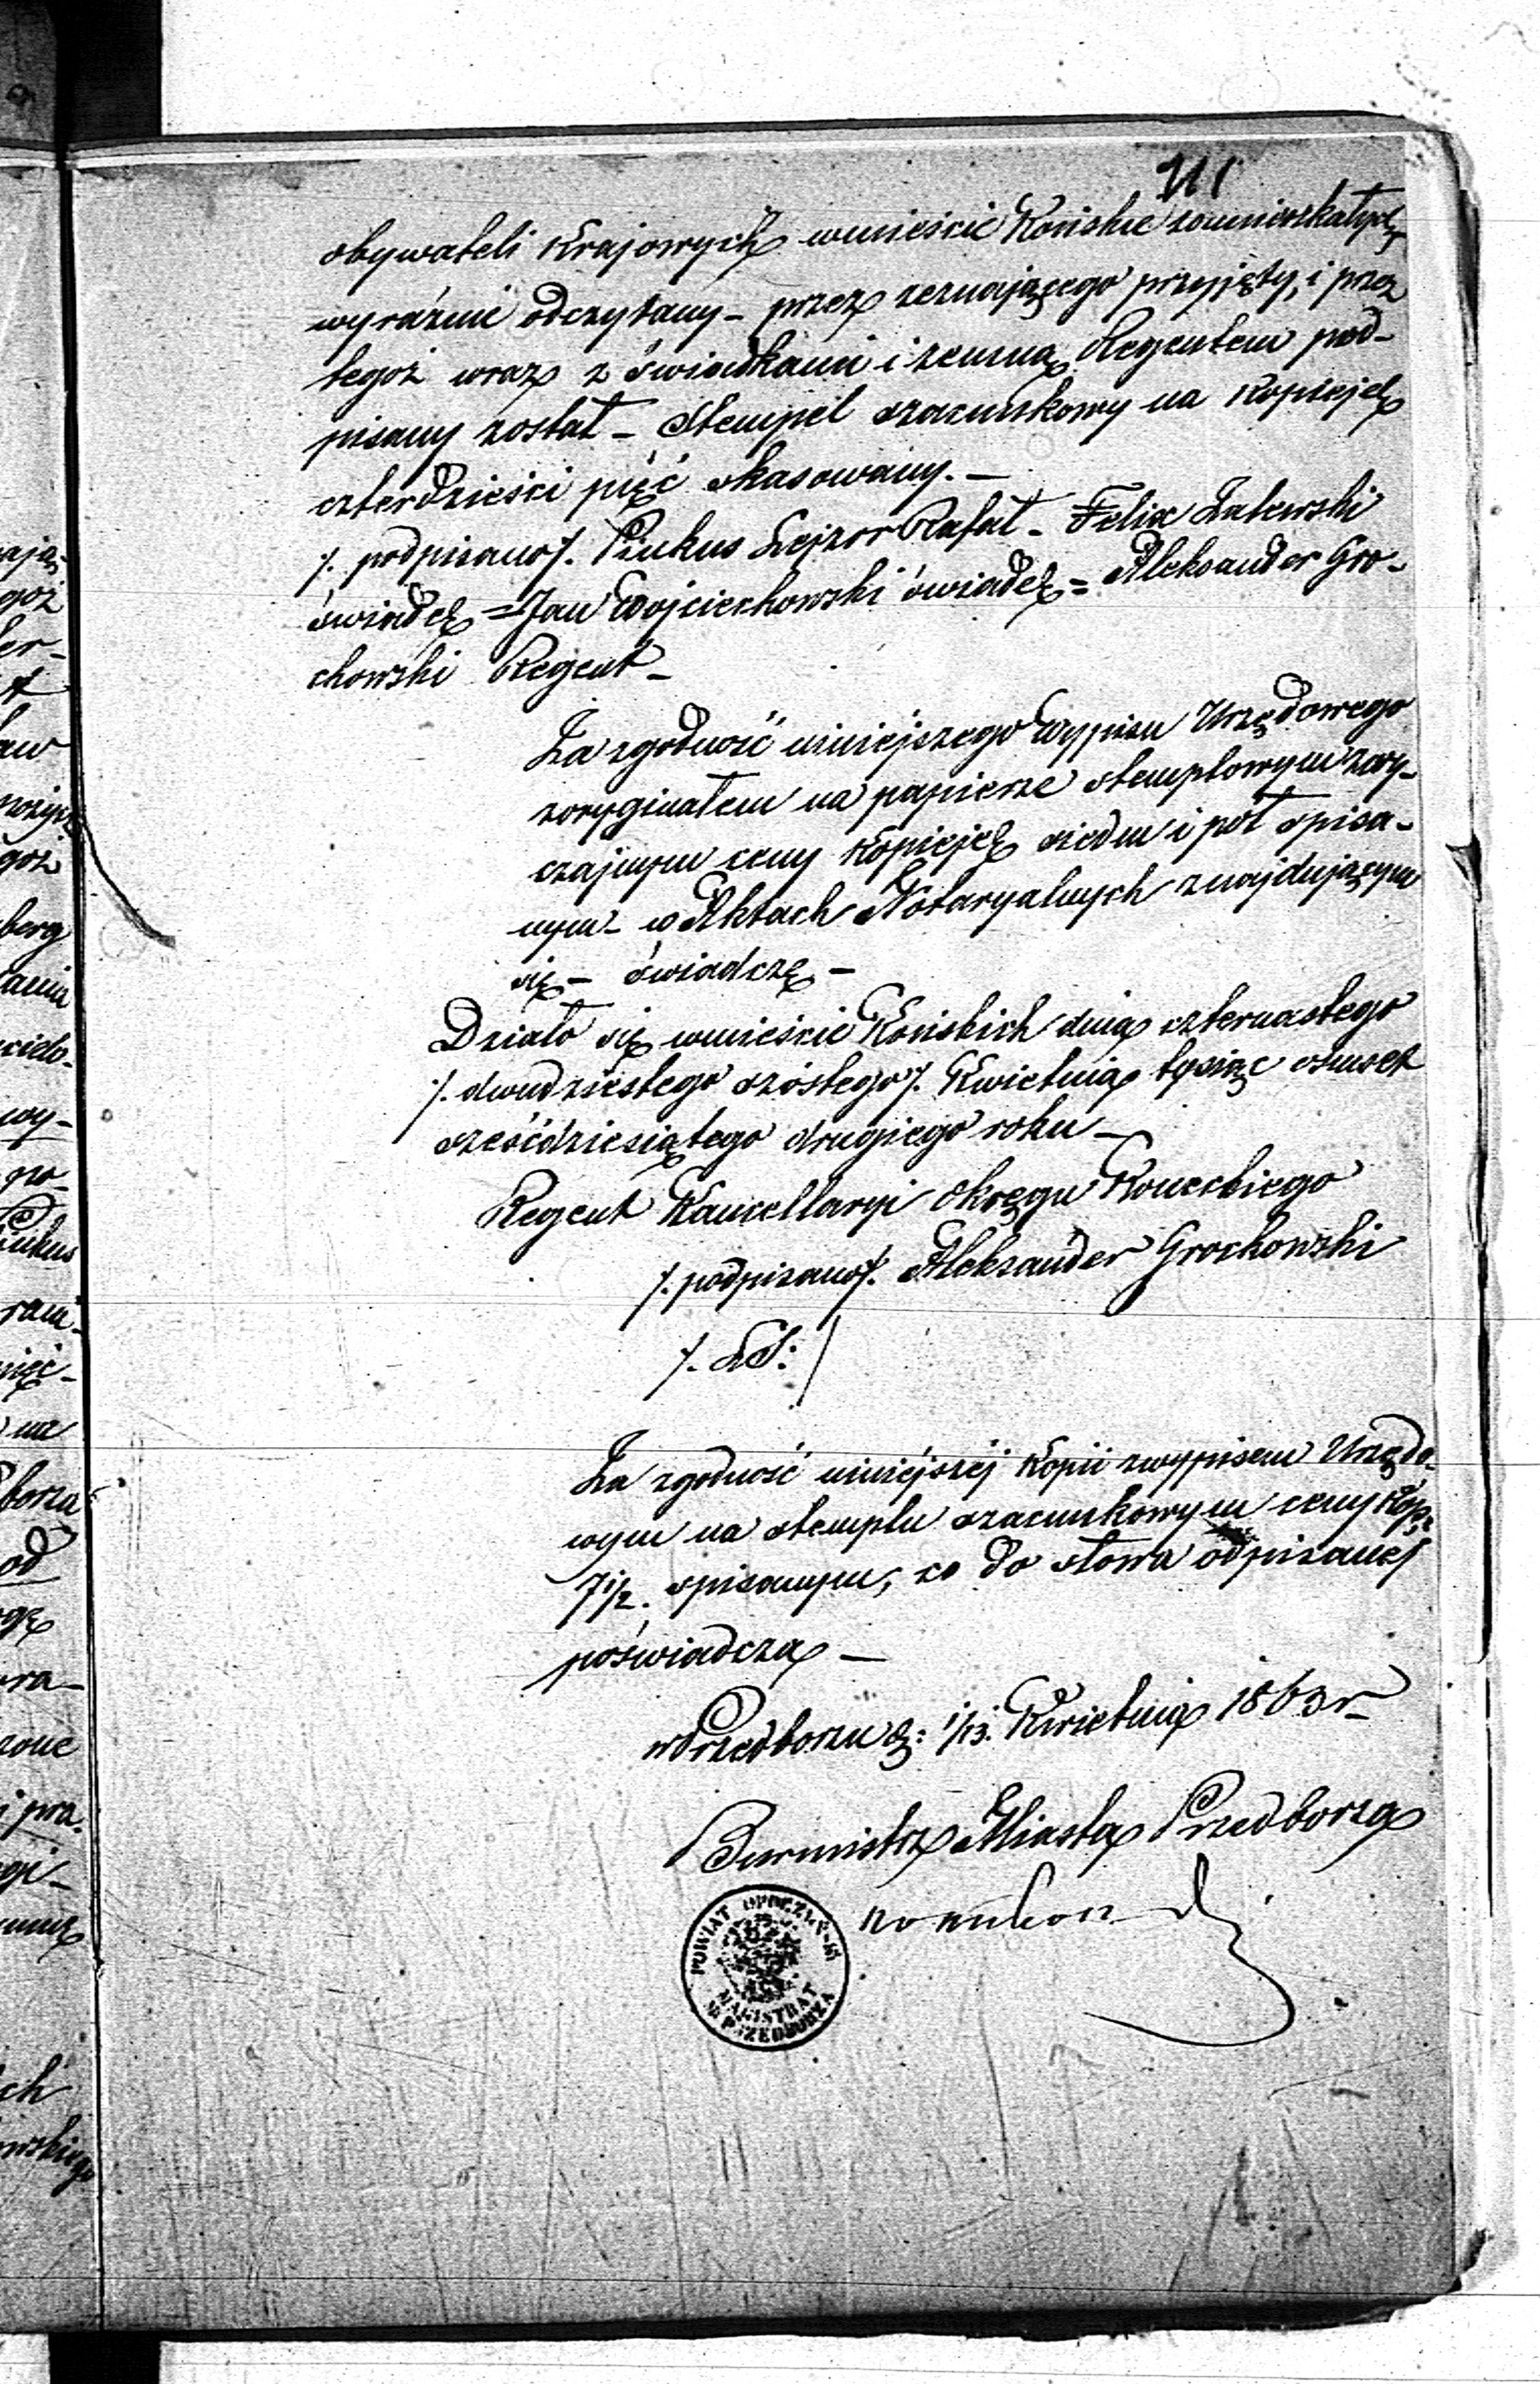 211
obywateli Krajowych w mieście Końskie zamieszkałych
wyraźnie odczytany – przez zeznającego przyjęty, i przez
tegoż wraz z świadkami i zemną Regentem pod-
pisany został – Stempel szacunkowy na Kopiejek
czterdzieści pięć skasowany. –
/. podpisano /. Pinkus Lejzor Rafał – Felix Zalewski
świadek = Jan Wojciechowski świadek = Aleksander Gro-
chowski Regent –
Za zgodność niniejszego Wypisu Urzędowego
z oryginałem na papierze stemplowym zwy-
czajnym ceny Kopiejek siedm i pół spisa-
nym – w Aktach Notaryalnych znajdującym
się – świadczę –
Działo się w mieście Końskich dnia czternastego
/. dwudziestego szóstego /. Kwietnia tysiąc osmset
sześćdziesiątego drugiego roku –
Regent Kancellaryi Okręgu Koneckiego
/. podpisano /. Aleksander Grochowski
/. LS: /
Za zgodność niniejszéj Kopii z wypisem Urzędo-
wym na stemplu szacunkowym ceny Kop:
7 1/2. spisanym, co do słowa odpisanej
poświadcza –
w Przedborzu d: 1/13. Kwietnia 1863 r
Burmistrz Miasta Przedborza
POWIAT OPOCZYŃSKI
MAGISTRAT
M. PRZEDBORZA